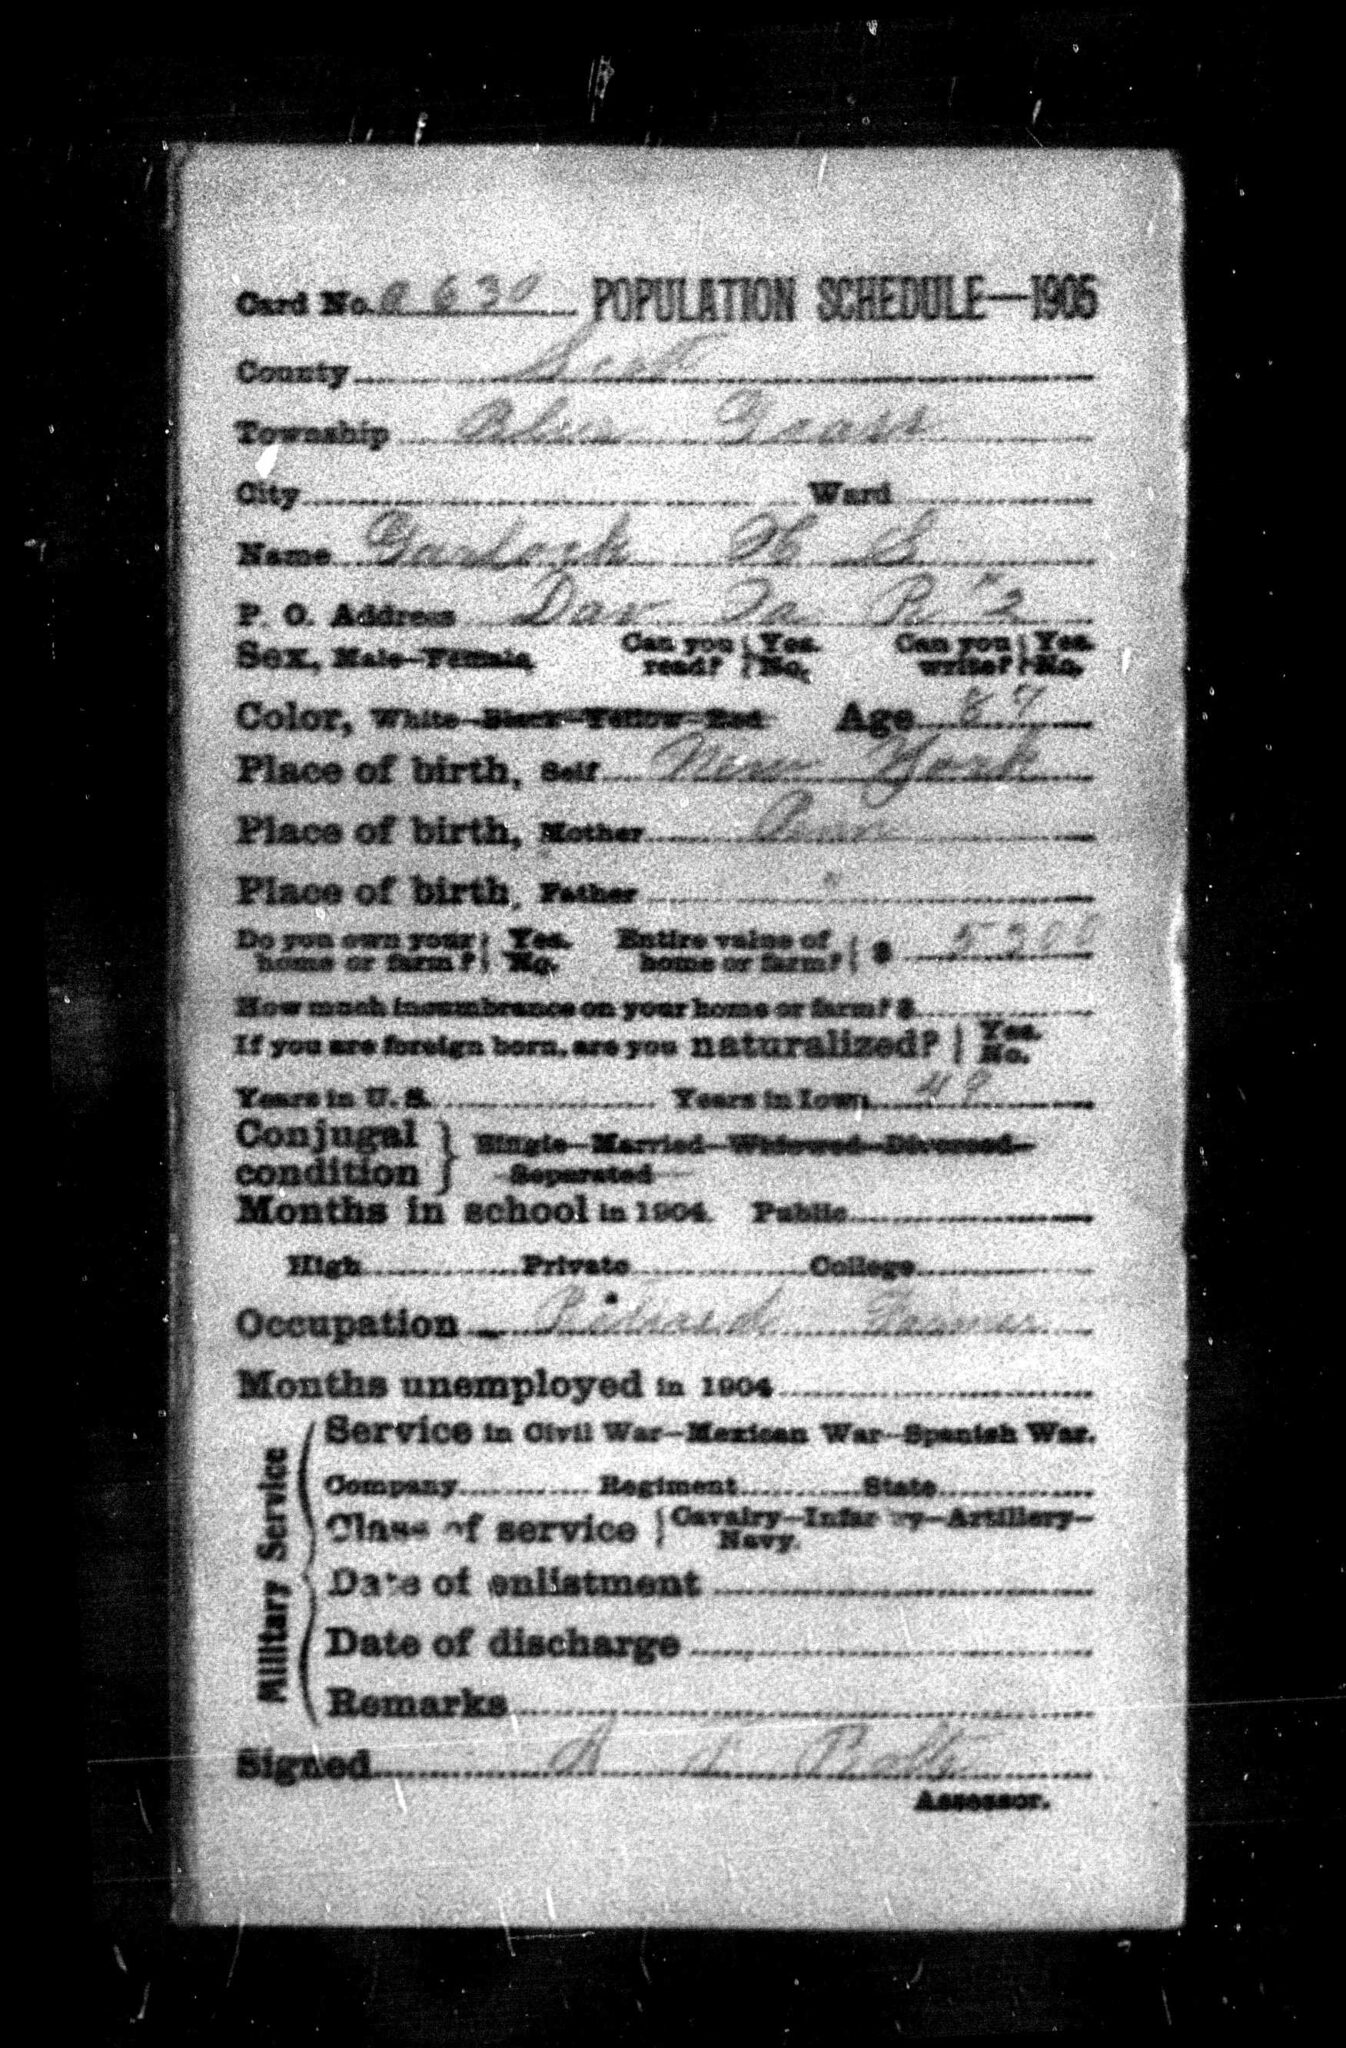 Card No. A 630 POPULATION SCHEDULE—1905
County Scott
Township Blue Grass
City Ward
Name Garlock H S
P. O. Address Dav Ia R " 2
Sex, Male—Female, Can you read? { Yes. No. Can you write? { Yes. No.
Color, White—Black—Yellow—Red Age 87
Place of birth, Self New York
Place of birth, Mother Penn
Place of birth, Father "
Do you own your home or farm? { Yes. No. Entire value of home or farm? { $ 5300
How much incumbrance on your home or farm? $
If you are foreign born, are you naturalized? { Yes. No.
Years in U. S. Years in Iowa 49
Conjugal condition } Single—Married—Widowed—Divorced—
Separated
Months in school in 1904. Public
High Private College
Occupation Retired Farmer
Months unemployed in 1904
Military Service
Service in Civil War—Mexican War—Spanish War.
Company Regiment State
Class of service { Cavalry—Infantry—Artillery—
Navy.
Date of enlistment
Date of discharge
Remarks
Signed
Assessor.